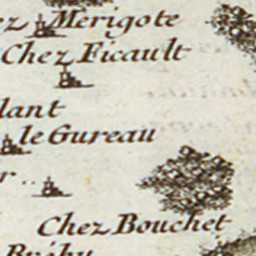 ez Merigote
Chez Ficault
lant
le Gureau
r..
Chez Bouchet
Bréhu